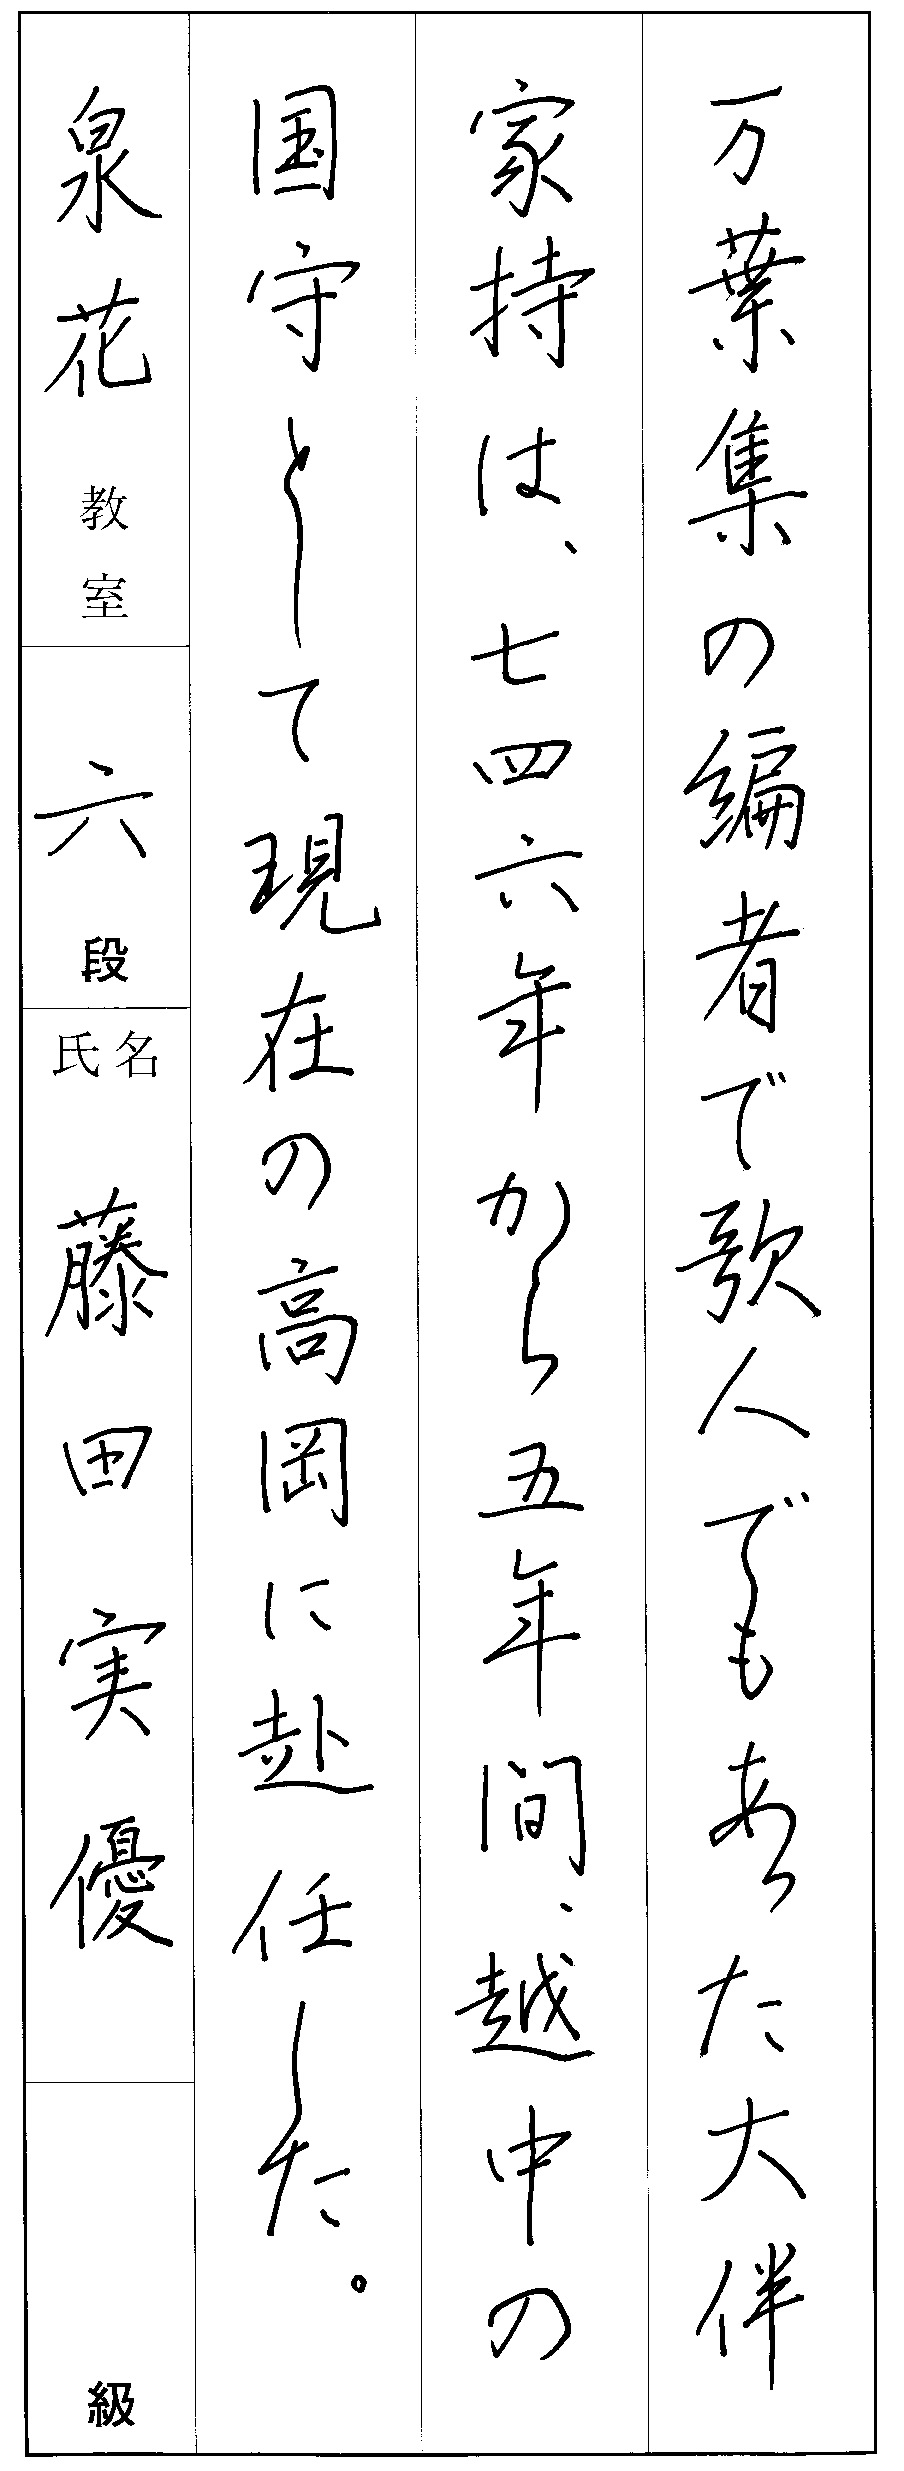 万葉集の編者で歌人でもあった大伴
家持は、七四六年から五年間、越中の
国守として現在の高岡に赴任した。
泉花教室
六段
氏名
藤田実優
級